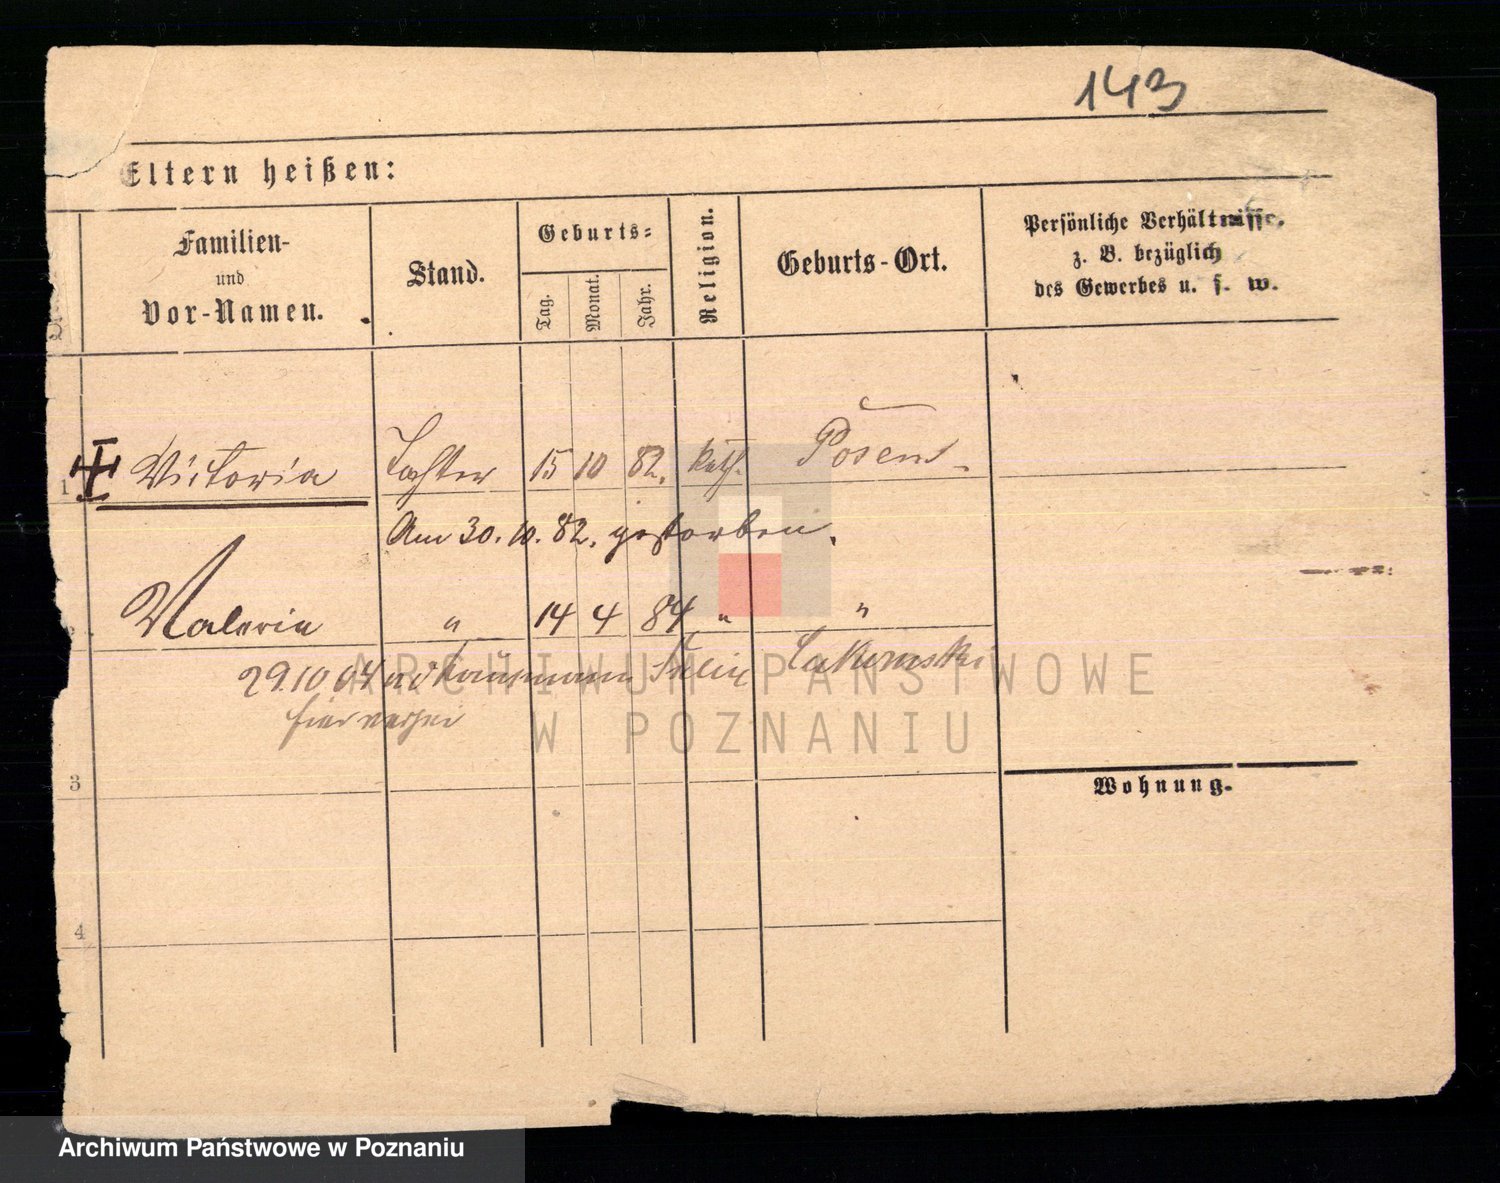 143
Eltern heißen:
Familien-
und
Vor-Namen.
Stand.
Geburts-
Tag.
Monat.
Jahr.
Religion.
Geburts-Ort.
Persönliche Verhältnisse,
z. B. bezüglich
des Gewerbes u. s. w.
1 Victoria Tochter 15 10 82. kath. Posen
Am 30. 10. 82. gestorben.
2 Valeria " 14 4 84 " "
29.10 04 Kaufmann Lakomski
hier
3
Wohnung.
4
ARCHIWUM PAŃSTWOWE
W POZNANIU
Archiwum Państwowe w Poznaniu